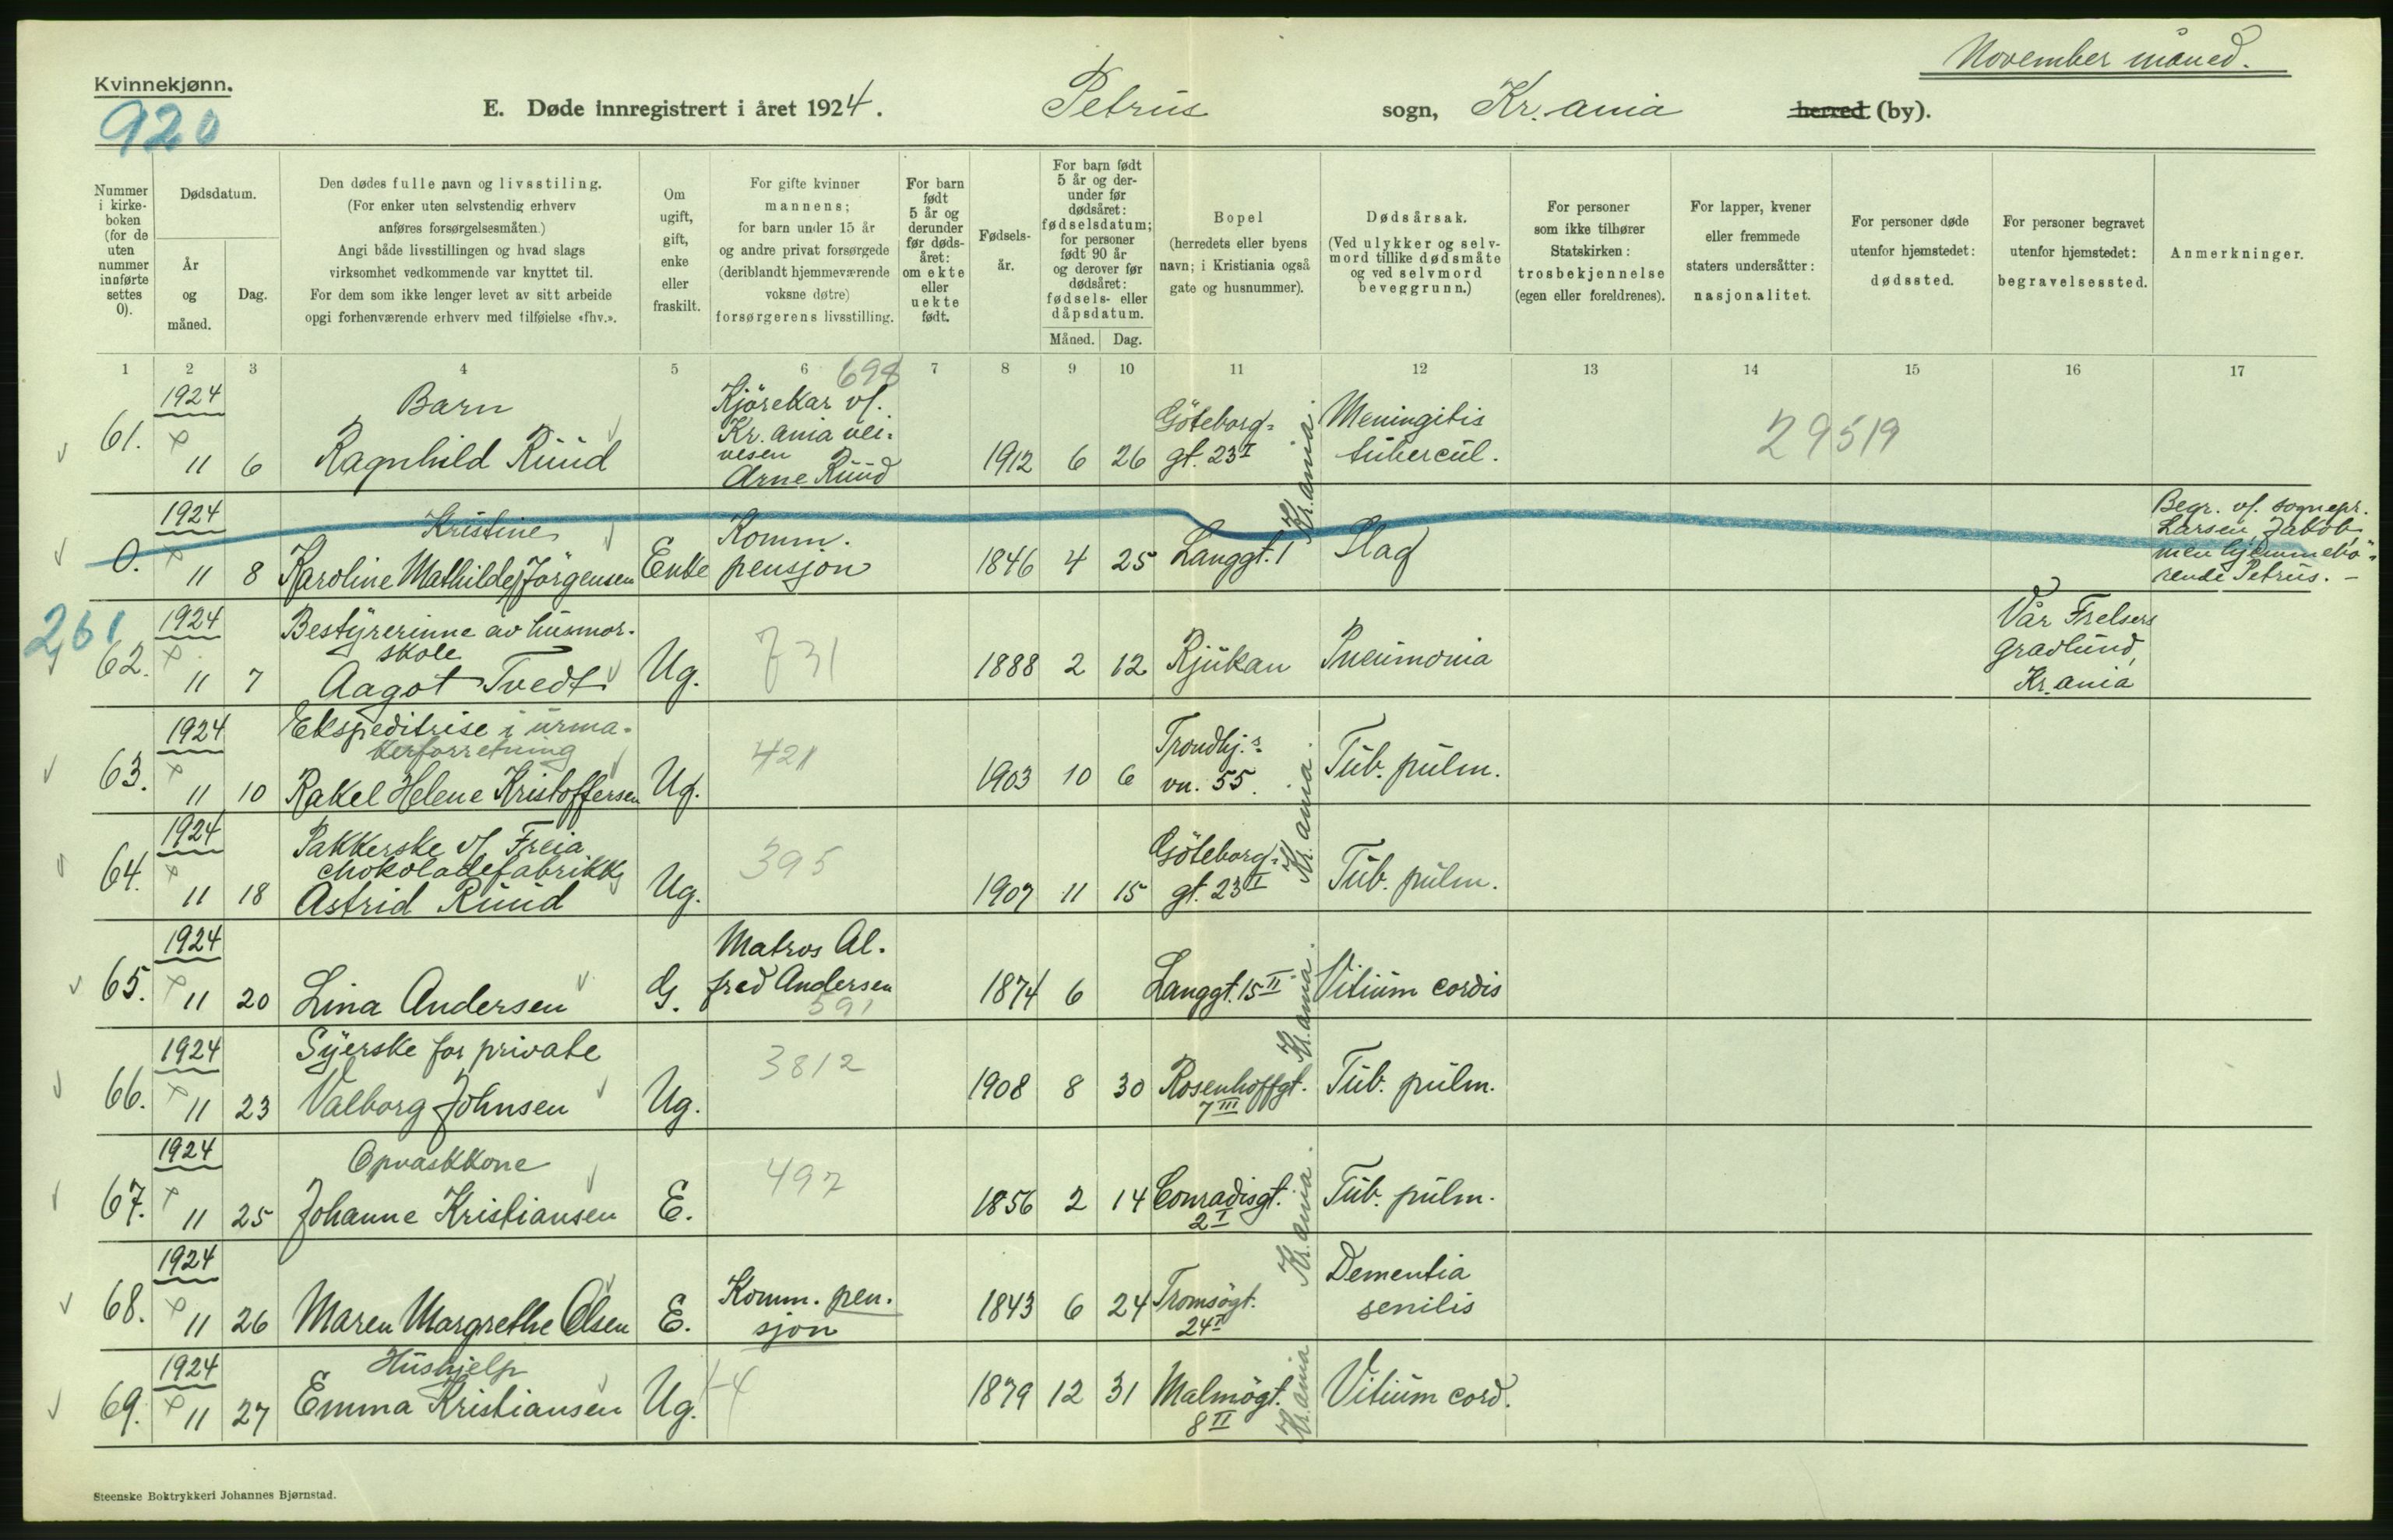 November måned.
Kvinnekjønn.
920
E. Døde innregistrert i året 1924. Petrus sogn, Kr.ania herred (by).
Nummer i kirke- boken (for de uten nummer innførte settes 0).
Dødsdatum.
År og måned.
Dag.
Den dødes fulle navn og livsstiling.
(For enker uten selvstendig erhverv
anføres forsørgelsesmåten.)
Angi både livsstillingen og hvad slags
virksomhet vedkommende var knyttet til.
For dem som ikke lenger levet av sitt arbeide
opgi forhenværende erhverv med tilføielse «fhv.».
Om ugift, gift, enke eller fraskilt.
For gifte kvinner
mannens;
for barn under 15 år
og andre privat forsørgede
(deriblandt hjemmeværende
voksne døtre)
forsørgerens livsstilling.
For barn født 5 år og derunder før døds- året: om ekte eller uekte født.
Fødsels- år.
For barn født 5 år og der- under før dødsåret: fødselsdatum; for personer født 90 år og derover før dødsåret: fødsels- eller dåpsdatum.
Måned. Dag.
Bopel
(herredets eller byens
navn; i Kristiania også
gate og husnummer).
Dødsårsak.
(Ved ulykker og selv-
mord tillike dødsmåte
og ved selvmord
beveggrunn.)
For personer
som ikke tilhører
Statskirken:
trosbekjennelse
(egen eller foreldrenes).
For lapper, kvener
eller fremmede
staters undersåtter:
nasjonalitet.
For personer døde
utenfor hjemstedet:
dødssted.
For personer begravet
utenfor hjemstedet:
begravelsessted.
Anmerkninger.
1 2 3 4 5 6 7 8 9 10 11 12 13 14 15 16 17
698
61. 1924 11 6 Barn
Ragnhild Ruud
Kjörekar v/.
Kr.ania vei-
vesen
Arne Ruud
1912 6 26 Göteborg-
gt. 23 I Kr.ania.
Meningitis
tubercul.
29519
0. 1924 11 8 Kristine
Karoline Mathilde Jörgensen
Enke Komm.
pensjon
1846 4 25 Langgt. 1 Slag
Begr. v/. sognepr.
Larsen, Jakob,
men hjemmehö-
rende Petrus. –
261
62. 1924 11 7 Bestyrerinne av husmor-
skole
Aagot Tvedt
Ug. 731 1888 2 12 Rjukan Pneumonia
Vår Frelsers
gravlund,
Kr.ania
63. 1924 11 10 Ekspeditrise i urma-
kerforretning
Rakel Helene Kristoffersen
Ug. 421 1903 10 6 Trondhj.s
vn. 55. Kr.ania.
Tub. pulm.
64. 1924 11 18 Pakkerske v/ Freia
chokoladefabrikk
Astrid Ruud
Ug. 395 1907 11 15 Göteborg-
gt. 23 I
Tub. pulm.
65. 1924 11 20 Lina Andersen
G. Matros Al-
fred Andersen
591
1874 6 Langgt. 15 II Kr.ania. Vitium cordis
66. 1924 11 23 Syerske for private
Valborg Johnsen
Ug. 3812 1908 8 30 Rosenhoffgt.
7 III
Tub. pulm.
67. 1924 11 25 Opvaskkone
Johanne Kristiansen
E. 497 1856 2 14 Conradisgt.
2 I Kr.ania.
Tub. pulm.
68. 1924 11 26 Maren Margrethe Olsen
E. Komm. pen-
sjon
1843 6 24 Tromsögt.
24 I
Dementia
senilis
69. 1924 11 27 Hushjelp
Emma Kristiansen
Ug. 1879 12 31 Malmögt.
8 II Kr.ania
Vitium cord.
Steenske Boktrykkeri Johannes Bjørnstad.